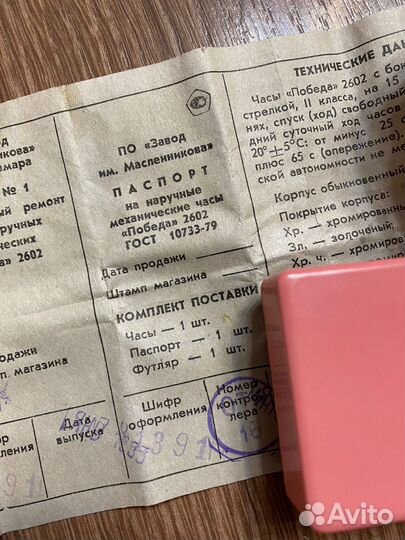 д
никова»
мара
№ 1
ый ремонт
ручных
ческих
а» 2602
одажи
п. магазина
Дата
выпуска
ПО «Завод
им. Масленникова»
ПАСПОРТ
на наручные
механические часы
«Победа» 2602
ГОСТ 10733-79
Дата продажи
Штамп магазина
КОМПЛЕКТ ПОСТАВКИ
Часы — 1 шт.
Паспорт — 1 шт.
Футляр — 1 шт.
Шифр
оформления
Номер
контро
лера
ТЕХНИЧЕСКИЕ ДАН
Часы «Победа» 2602 с бок
стрелкой, II класса, на 15
нях, спуск (ход) свободный
дний суточный ход часов
20°±5°С: от минус 25 с
плюс 65 с (опережение).
ской автономности не ме
Корпус обыкновенный
Покрытие корпуса:
Хр. — хромированны
Зл. — золоченый;
Хр. ч. — хромиров
Avito